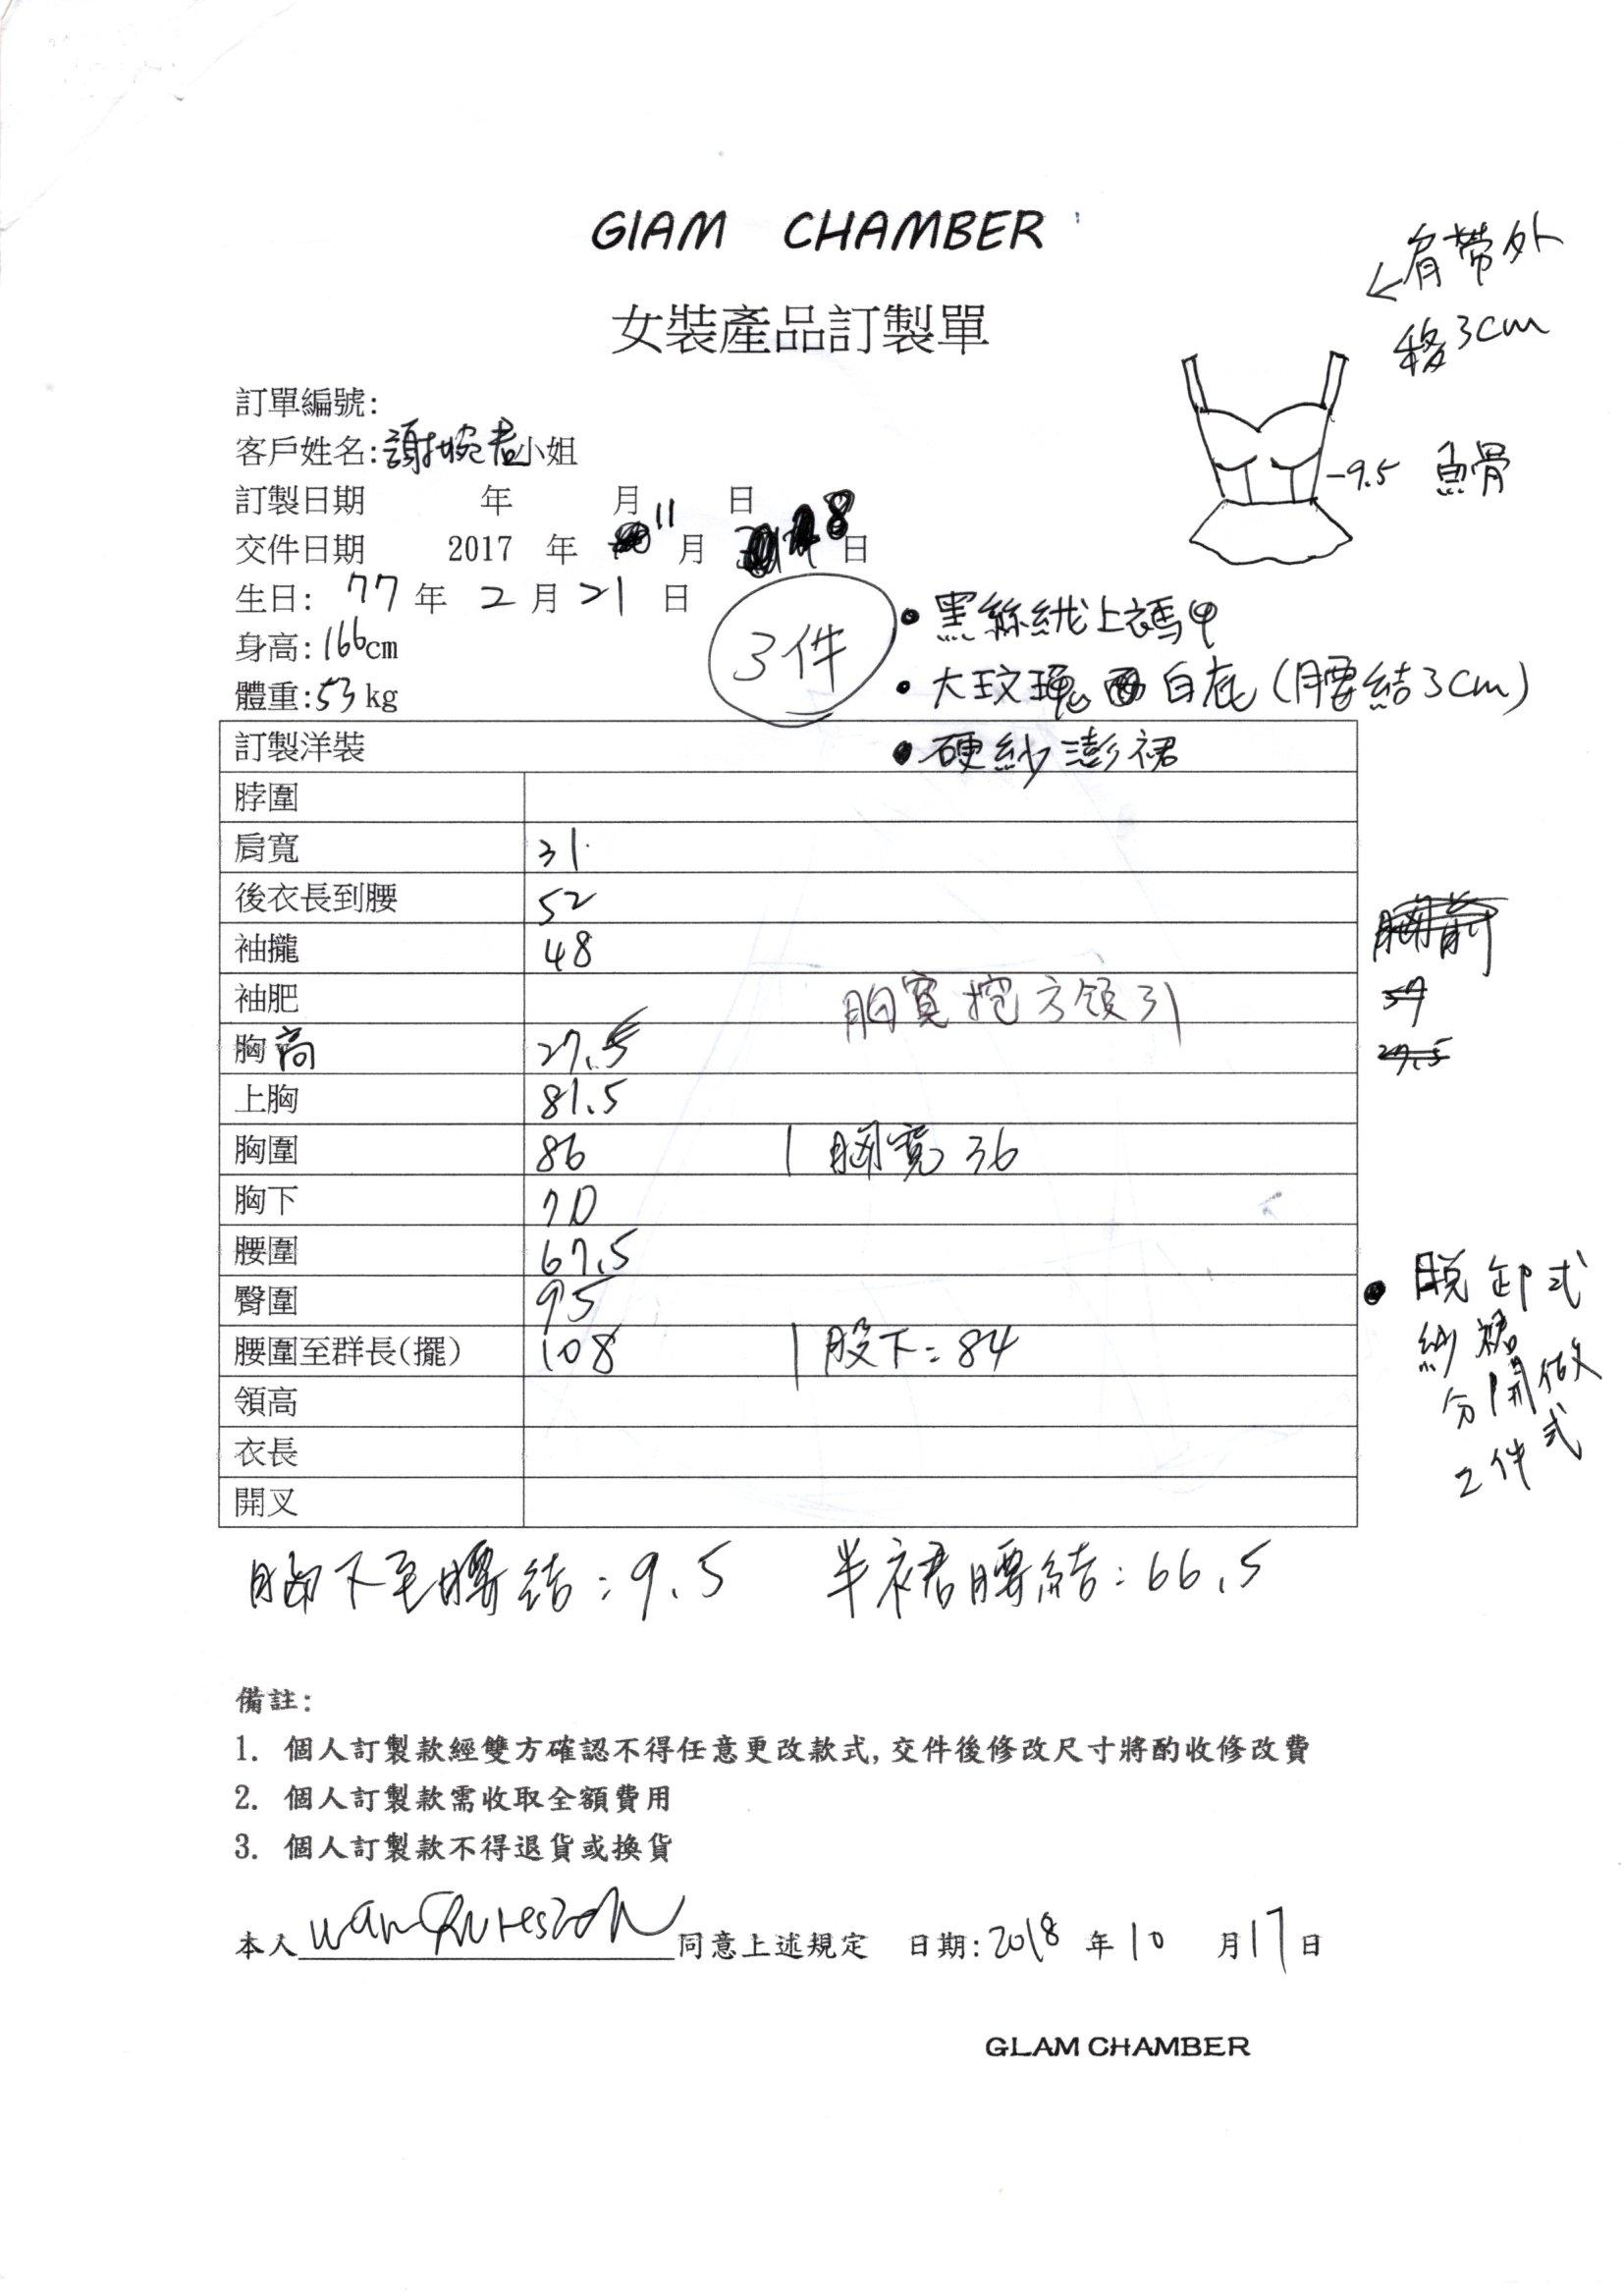 GIAM CHAMBER
女裝產品訂製單
←肩帶外
移3cm
-9.5 魚骨
訂單編號:
客戶姓名:謝婉君小姐
訂製日期 年 月 日
交件日期 2017 年 11 月 8 日
生日: 77 年 2 月 21 日
身高:166cm
體重:53 kg
3件
• 黑絲絨上馬甲
• 大玫瑰 白底(腰結3cm)
• 硬紗澎裙
訂製洋裝
脖圍
肩寬 31
後衣長到腰 52
袖攏 48
袖肥
胸寬挖方領31
胸高 27.5
上胸 81.5
胸圍 86 | 胸寬36
胸下 70
腰圍 67.5
臀圍 95
腰圍至群長(擺) 108 | 股下=84
領高
衣長
開叉
胸前
57
27.5
• 脫卸式
紗裙
分開做
2件式
胸下至腰結:9.5 半裙腰結:66.5
備註:
1. 個人訂製款經雙方確認不得任意更改款式,交件後修改尺寸將酌收修改費
2. 個人訂製款需收取全額費用
3. 個人訂製款不得退貨或換貨
本人 同意上述規定 日期:2018 年 10 月 17 日
GLAM CHAMBER